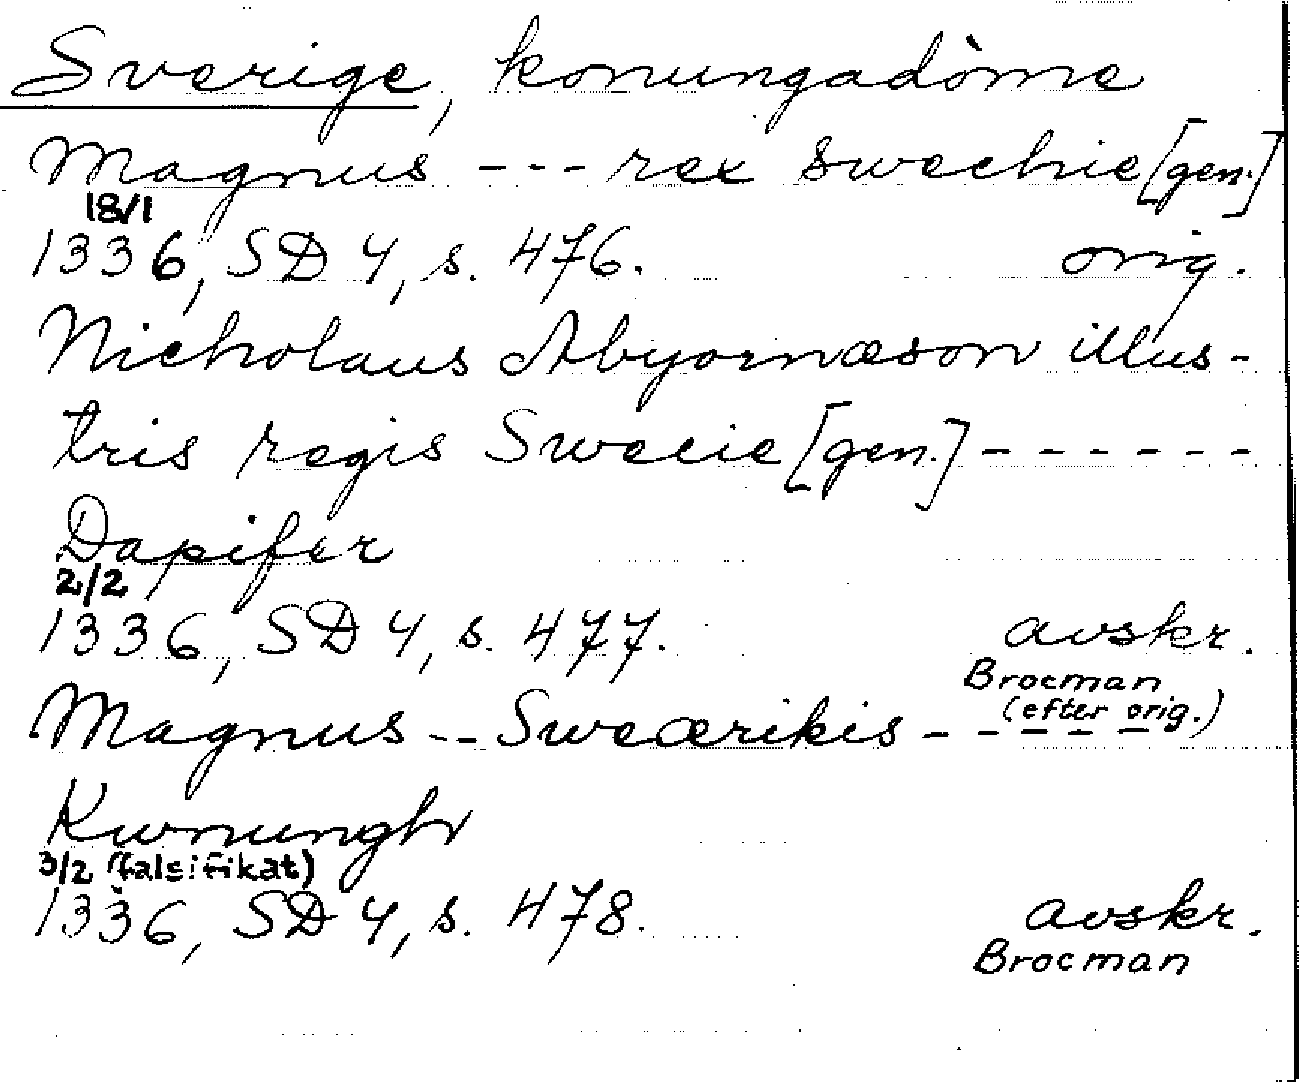 Sverige, konungadöme
Magnus --- rex swechie [gen.]
18/1
1336, SD 4, s. 476. orig.
Nicholaus Abyornæson illus-
tris regis Swecie [gen.] ------
Dapifer
2/2
1336, SD 4, s. 477. avskr.
Brocman
(efter orig.)
Magnus -- Sweærikis -----
Kwnunghr
3/2 (falsifikat)
1336, SD 4, s. 478. avskr.
Brocman